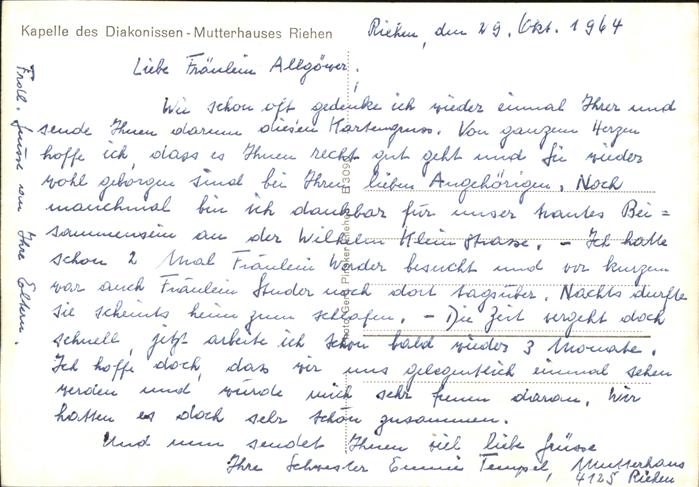 Kapelle des Diakonissen-Mutterhauses Riehen
Riehen, den 29. Okt. 1964
Liebe Fräulein Allgöwer,
Wie schon oft gedenke ich wieder einmal Ihrer und
sende Ihnen darum diesen Kartengruss. Von ganzem Herzen
hoffe ich, dass es Ihnen recht gut geht und Sie wieder
wohl geborgen sind bei Ihren lieben Angehörigen. Noch
manchmal bin ich dankbar für unser trautes Bei=
sammensein an der Wilhelm Klein Strasse. – Ich hatte
schon 2 Mal Fräulein Werder besucht und vor kurzem
war auch Fräulein Studer noch dort tagsüber. Nachts durfte
sie scheints heim zum schlafen. – Die Zeit vergeht doch
schnell, jetzt arbeite ich schon bald wieder 3 Monate.
Ich hoffe doch, dass wir uns gelegentlich einmal sehen
werden und würde mich sehr freuen daran. Wir
hatten es doch sehr schön zusammen.
Und nun sendet Ihnen viel liebe Grüsse
Ihre Schwester Emmie Tempel, Mutterhaus
4125 Riehen
Grüsse an Ihre Eltern.
Photo Gerd Riehen